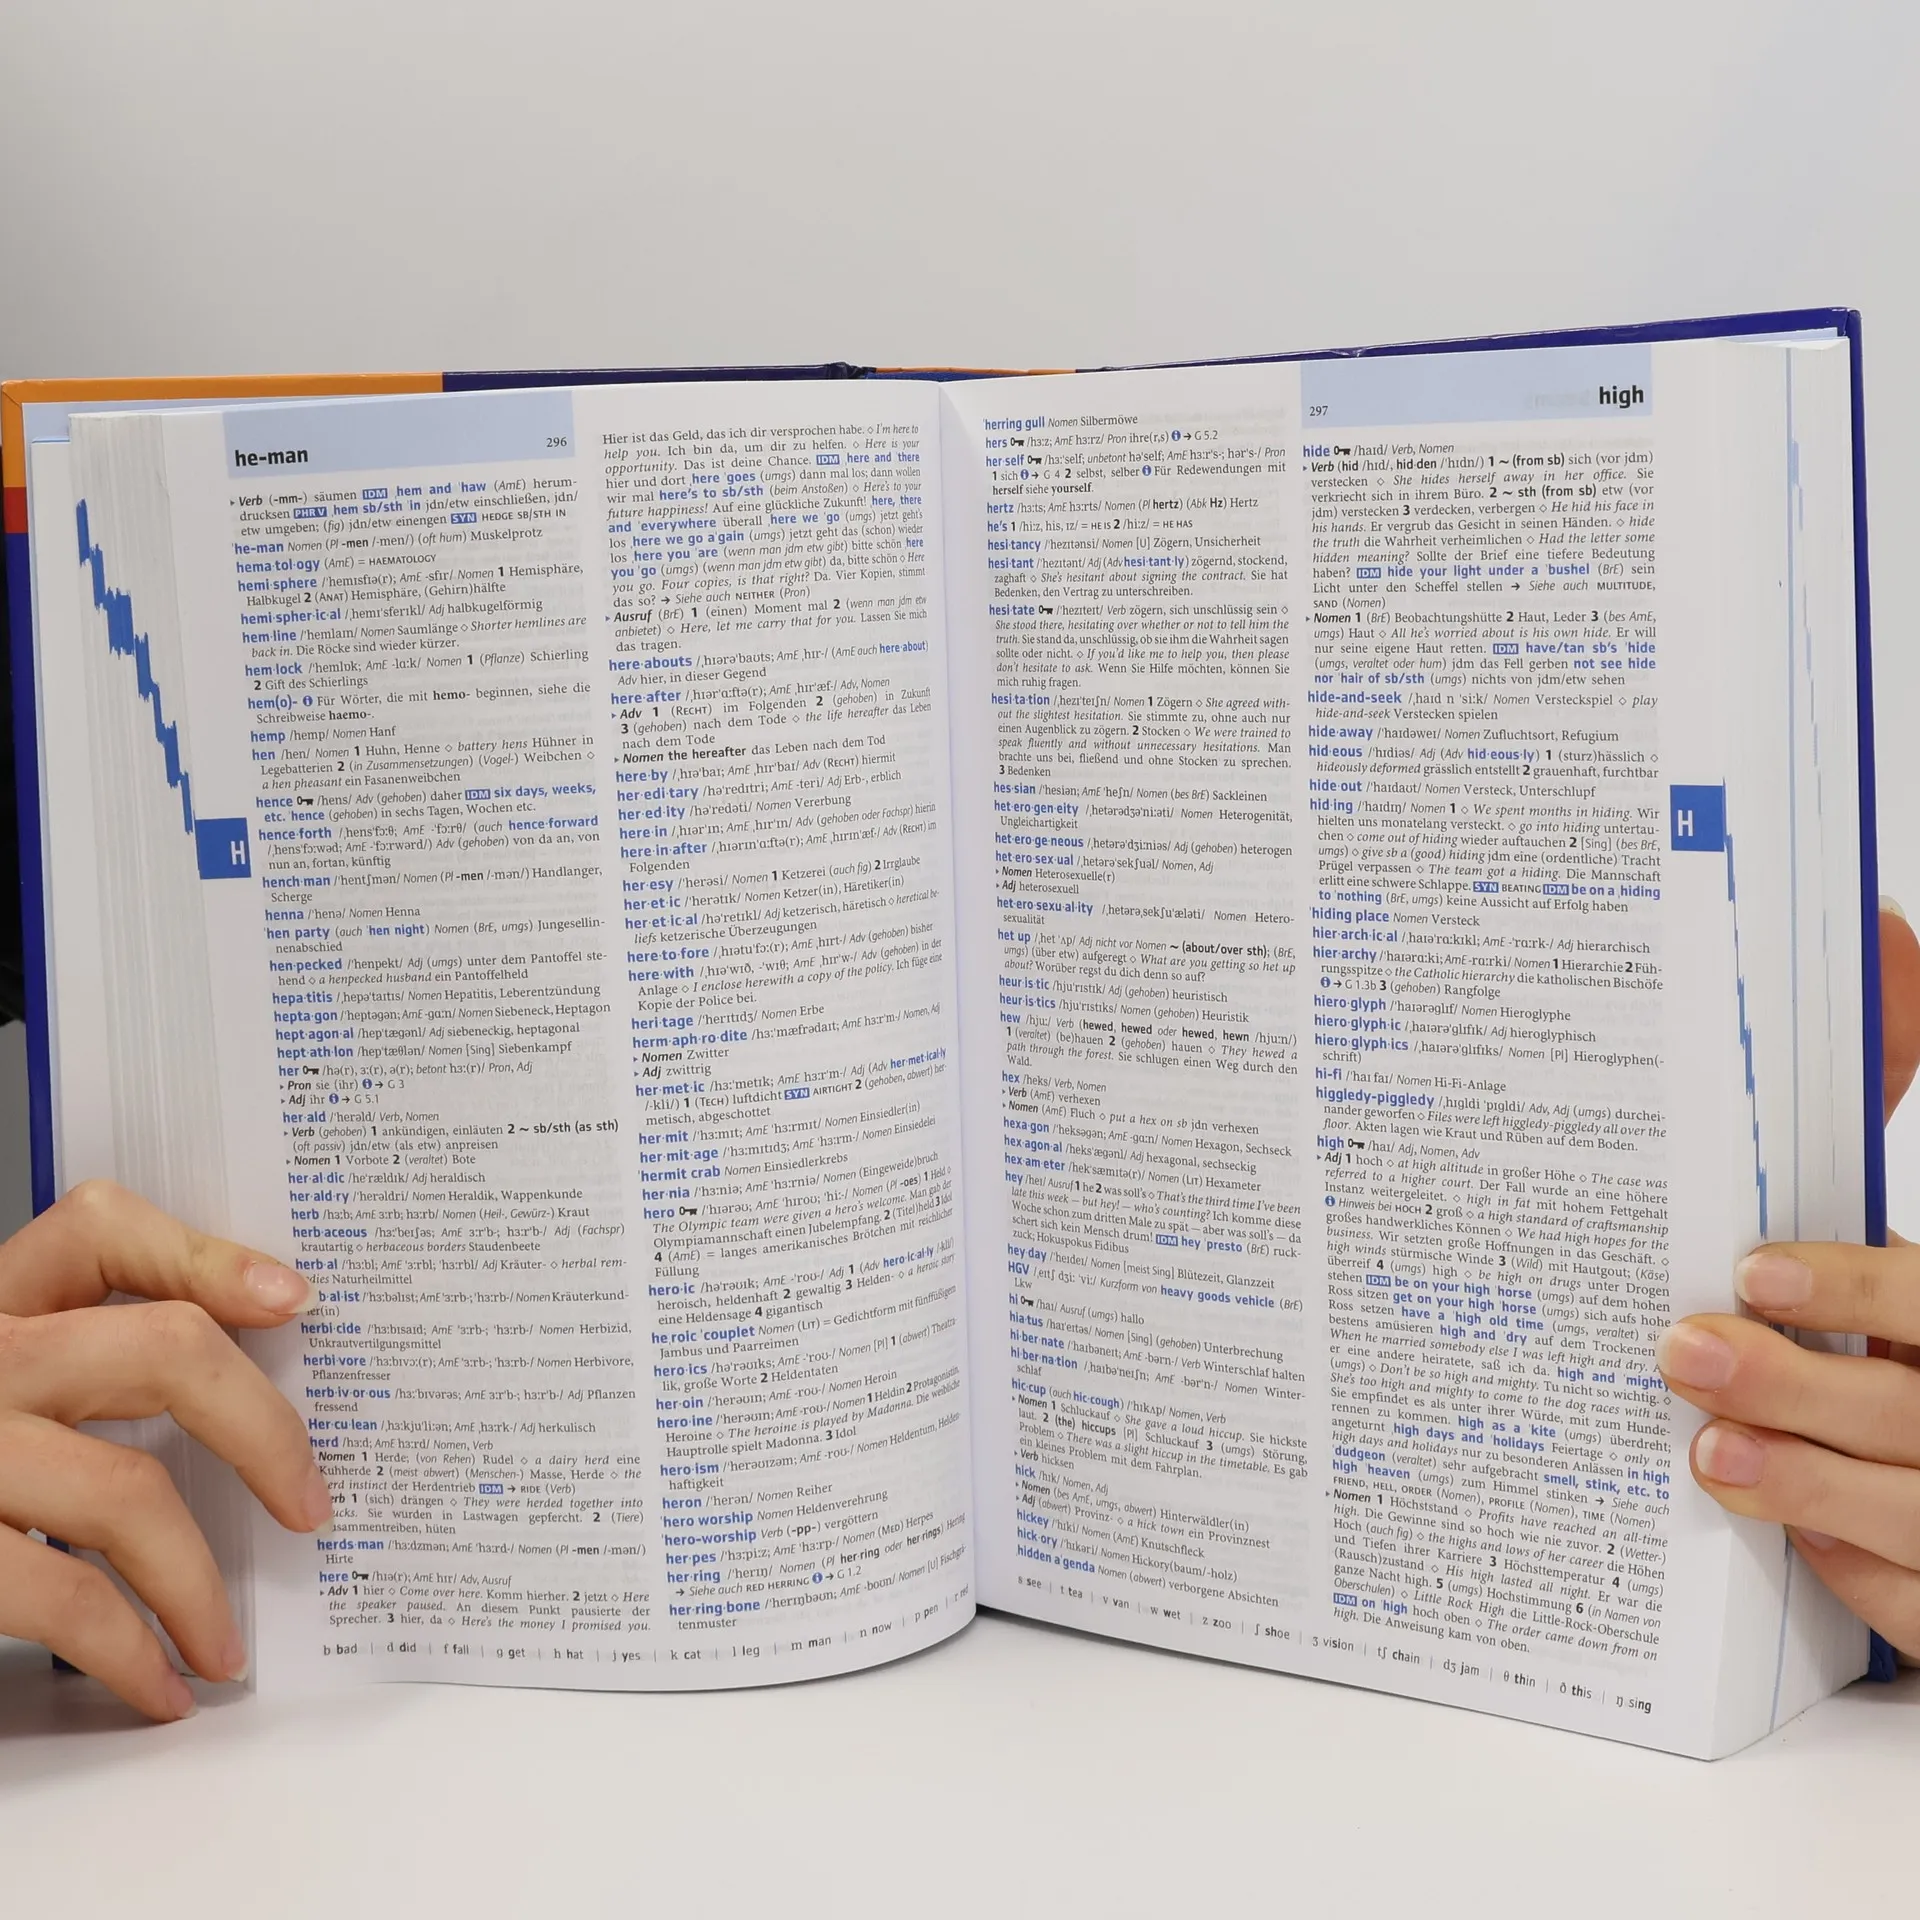 he-man 296
▸ Verb (-mm-) säumen IDM ˌhem and ˈhaw (AmE) herum-
drucksen PHR V ˌhem sb/sth ˈin jdn/etw einschließen, jdn/
etw umgeben; (fig) jdn/etw einengen SYN HEDGE SB/STH IN
ˈhe-man Nomen (Pl -men /-men/) (oft hum) Muskelprotz
hema·tol·ogy (AmE) = HAEMATOLOGY
hemi·sphere /ˈhemɪsfɪə(r); AmE -sfɪr/ Nomen 1 Hemisphäre,
Halbkugel 2 (ANAT) Hemisphäre, (Gehirn)hälfte
hemi·spher·ic·al /ˌhemɪˈsferɪkl/ Adj halbkugelförmig
hem·line /ˈhemlaɪn/ Nomen Saumlänge ◇ Shorter hemlines are
back in. Die Röcke sind wieder kürzer.
hem·lock /ˈhemlɒk; AmE -lɑːk/ Nomen 1 (Pflanze) Schierling
2 Gift des Schierlings
hem(o)- ℹ Für Wörter, die mit hemo- beginnen, siehe die
Schreibweise haemo-.
hemp /hemp/ Nomen Hanf
hen /hen/ Nomen 1 Huhn, Henne ◇ battery hens Hühner in
Legebatterien 2 (in Zusammensetzungen) (Vogel-) Weibchen ◇
a hen pheasant ein Fasanenweibchen
hence /hens/ Adv (gehoben) daher IDM six days, weeks,
etc. ˈhence (gehoben) in sechs Tagen, Wochen etc.
hence·forth /ˌhensˈfɔːθ; AmE -ˈfɔːrθ/ (auch hence·forward
/ˌhensˈfɔːwəd; AmE -ˈfɔːrwərd/) Adv (gehoben) von da an, von
nun an, fortan, künftig
hench·man /ˈhentʃmən/ Nomen (Pl -men /-mən/) Handlanger,
Scherge
henna /ˈhenə/ Nomen Henna
ˈhen party (auch ˈhen night) Nomen (BrE, umgs) Jungesellin-
nenabschied
hen·pecked /ˈhenpekt/ Adj (umgs) unter dem Pantoffel ste-
hend ◇ a henpecked husband ein Pantoffelheld
hepa·titis /ˌhepəˈtaɪtɪs/ Nomen Hepatitis, Leberentzündung
hepta·gon /ˈheptəgən; AmE -gɑːn/ Nomen Siebeneck, Heptagon
hept·agon·al /hepˈtægənl/ Adj siebeneckig, heptagonal
hept·ath·lon /hepˈtæθlən/ Nomen [Sing] Siebenkampf
her /hə(r), ɜː(r), ə(r); betont hɜː(r)/ Pron, Adj
▸ Pron sie (ihr) ℹ → G 3
▸ Adj ihr ℹ → G 5.1
her·ald /ˈherəld/ Verb, Nomen
▸ Verb (gehoben) 1 ankündigen, einläuten 2 ~ sb/sth (as sth)
(oft passiv) jdn/etw (als etw) anpreisen
▸ Nomen 1 Vorbote 2 (veraltet) Bote
her·al·dic /heˈrældɪk/ Adj heraldisch
her·ald·ry /ˈherəldri/ Nomen Heraldik, Wappenkunde
herb /hɜːb; AmE ɜːrb; hɜːrb/ Nomen (Heil-, Gewürz-) Kraut
herb·aceous /hɜːˈbeɪʃəs; AmE ɜːrˈb-; hɜːrˈb-/ Adj (Fachspr)
krautartig ◇ herbaceous borders Staudenbeete
herb·al /ˈhɜːbl; AmE ˈɜːrbl; ˈhɜːrbl/ Adj Kräuter- ◇ herbal rem-
dies Naturheilmittel
b·al·ist /ˈhɜːbəlɪst; AmE ˈɜːrb-; ˈhɜːrb-/ Nomen Kräuterkund-
er(in)
herbi·cide /ˈhɜːbɪsaɪd; AmE ˈɜːrb-; ˈhɜːrb-/ Nomen Herbizid,
Unkrautvertilgungsmittel
herbi·vore /ˈhɜːbɪvɔː(r); AmE ˈɜːrb-; ˈhɜːrb-/ Nomen Herbivore,
Pflanzenfresser
herb·iv·or·ous /hɜːˈbɪvərəs; AmE ɜːrˈb-; hɜːrˈb-/ Adj Pflanzen
fressend
Her·cu·lean /ˌhɜːkjuˈliːən; AmE ˌhɜːrk-/ Adj herkulisch
herd /hɜːd; AmE hɜːrd/ Nomen, Verb
Nomen 1 Herde; (von Rehen) Rudel ◇ a dairy herd eine
Kuhherde 2 (meist abwert) (Menschen-) Masse, Herde ◇ the
erd instinct der Herdentrieb IDM → RIDE (Verb)
erb 1 (sich) drängen ◇ They were herded together into
ucks. Sie wurden in Lastwagen gepfercht. 2 (Tiere)
usammentreiben, hüten
herds·man /ˈhɜːdzmən; AmE ˈhɜːrd-/ Nomen (Pl -men /-mən/)
Hirte
here /hɪə(r); AmE hɪr/ Adv, Ausruf
▸ Adv 1 hier ◇ Come over here. Komm hierher. 2 jetzt ◇ Here
the speaker paused. An diesem Punkt pausierte der
Sprecher. 3 hier, da ◇ Here's the money I promised you.
Hier ist das Geld, das ich dir versprochen habe. ◇ I'm here to
help you. Ich bin da, um dir zu helfen. ◇ Here is your
opportunity. Das ist deine Chance. IDM ˌhere and there
hier und dort ˌhere ˈgoes (umgs) dann mal los; dann wollen
wir mal here's to sb/sth (beim Anstoßen) ◇ Here's to your
future happiness! Auf eine glückliche Zukunft! ˌhere, there
and ˈeverywhere überall ˌhere we ˈgo (umgs) jetzt geht's
los ˌhere we go aˈgain (umgs) jetzt geht das (schon) wieder
los ˌhere you ˈare (wenn man jdm etw gibt) bitte schön ˌhere
you ˈgo (umgs) (wenn man jdm etw gibt) da, bitte schön ◇ Here
you go. Four copies, is that right? Da. Vier Kopien, stimmt
das so? → Siehe auch NEITHER (Pron)
▸ Ausruf (BrE) 1 (einen) Moment mal 2 (wenn man jdm etw
anbietet) ◇ Here, let me carry that for you. Lassen Sie mich
das tragen.
here·abouts /ˌhɪərəˈbaʊts; AmE ˌhɪr-/ (AmE auch here·about)
Adv hier, in dieser Gegend
here·after /ˌhɪərˈɑːftə(r); AmE ˌhɪrˈæf-/ Adv, Nomen
▸ Adv 1 (RECHT) im Folgenden 2 (gehoben) in Zukunft
3 (gehoben) nach dem Tode ◇ the life hereafter das Leben
nach dem Tode
▸ Nomen the hereafter das Leben nach dem Tod
here·by /ˌhɪəˈbaɪ; AmE ˌhɪrˈbaɪ/ Adv (RECHT) hiermit
her·edi·tary /həˈredɪtri; AmE -teri/ Adj Erb-, erblich
her·ed·ity /həˈredəti/ Nomen Vererbung
here·in /ˌhɪərˈɪn; AmE ˌhɪrˈɪn/ Adv (gehoben oder Fachspr) hierin
here·in·after /ˌhɪərɪnˈɑːftə(r); AmE ˌhɪrɪnˈæf-/ Adv (RECHT) im
Folgenden
her·esy /ˈherəsi/ Nomen 1 Ketzerei (auch fig) 2 Irrglaube
her·et·ic /ˈherətɪk/ Nomen Ketzer(in), Häretiker(in)
her·et·ic·al /həˈretɪkl/ Adj ketzerisch, häretisch ◇ heretical be-
liefs ketzerische Überzeugungen
here·to·fore /ˌhɪətuˈfɔː(r); AmE ˌhɪrt-/ Adv (gehoben) bisher
here·with /ˌhɪəˈwɪð, -ˈwɪθ; AmE ˌhɪrˈw-/ Adv (gehoben) in der
Anlage ◇ I enclose herewith a copy of the policy. Ich füge eine
Kopie der Police bei.
heri·tage /ˈherɪtɪdʒ/ Nomen Erbe
herm·aph·ro·dite /hɜːˈmæfrədaɪt; AmE hɜːrˈm-/ Nomen, Adj
▸ Nomen Zwitter
▸ Adj zwittrig
her·met·ic /hɜːˈmetɪk; AmE hɜːrˈm-/ Adj (Adv her·met·ical·ly
/-kli/) 1 (TECH) luftdicht SYN AIRTIGHT 2 (gehoben, abwert) her-
metisch, abgeschottet
her·mit /ˈhɜːmɪt; AmE ˈhɜːrmɪt/ Nomen Einsiedler(in)
her·mit·age /ˈhɜːmɪtɪdʒ; AmE ˈhɜːrm-/ Nomen Einsiedelei
ˈhermit crab Nomen Einsiedlerkrebs
her·nia /ˈhɜːniə; AmE ˈhɜːrniə/ Nomen (Eingeweide)bruch
hero /ˈhɪərəʊ; AmE ˈhɪroʊ; ˈhiː-/ Nomen (Pl -oes) 1 Held ◇
The Olympic team were given a hero's welcome. Man gab der
Olympiamannschaft einen Jubelempfang. 2 (Titel)held 3 Idol
4 (AmE) = langes amerikanisches Brötchen mit reichlicher
Füllung
hero·ic /həˈrəʊɪk; AmE -ˈroʊ-/ Adj 1 (Adv hero·ic·al·ly /-kli/)
heroisch, heldenhaft 2 gewaltig 3 Helden- ◇ a heroic story
eine Heldensage 4 gigantisch
heˌroic ˈcouplet Nomen (LIT) = Gedichtform mit fünffüßigem
Jambus und Paarreimen
hero·ics /həˈrəʊɪks; AmE -ˈroʊ-/ Nomen [Pl] 1 (abwert) Theatra-
lik, große Worte 2 Heldentaten
her·oin /ˈherəʊɪn; AmE -roʊ-/ Nomen Heroin
hero·ine /ˈherəʊɪn; AmE -roʊ-/ Nomen 1 Heldin 2 Protagonistin,
Heroine ◇ The heroine is played by Madonna. Die weibliche
Hauptrolle spielt Madonna. 3 Idol
hero·ism /ˈherəʊɪzəm; AmE -roʊ-/ Nomen Heldentum, Helden-
haftigkeit
heron /ˈherən/ Nomen Reiher
ˈhero worship Nomen Heldenverehrung
ˈhero-worship Verb (-pp-) vergöttern
her·pes /ˈhɜːpiːz; AmE ˈhɜːrp-/ Nomen (MED) Herpes
her·ring /ˈherɪŋ/ Nomen (Pl her·ring oder her·rings) Hering
→ Siehe auch RED HERRING ℹ → G 1.2
her·ring·bone /ˈherɪŋbəʊn; AmE -boʊn/ Nomen [U] Fischgrä-
tenmuster
H
b bad | d did | f fall | g get | h hat | j yes | k cat | l leg | m man | n now | p pen | r red
297 high
ˈherring gull Nomen Silbermöwe
hers /hɜːz; AmE hɜːrz/ Pron ihre(r,s) ℹ → G 5.2
her·self /hɜːˈself; unbetont həˈself; AmE hɜːrˈs-; hərˈs-/ Pron
1 sich ℹ → G 4 2 selbst, selber ℹ Für Redewendungen mit
herself siehe yourself.
hertz /hɜːts; AmE hɜːrts/ Nomen (Pl hertz) (Abk Hz) Hertz
he's 1 /hiːz, his, ɪz/ = HE IS 2 /hiːz/ = HE HAS
hesi·tancy /ˈhezɪtənsi/ Nomen [U] Zögern, Unsicherheit
hesi·tant /ˈhezɪtənt/ Adj (Adv hesi·tant·ly) zögernd, stockend,
zaghaft ◇ She's hesitant about signing the contract. Sie hat
Bedenken, den Vertrag zu unterschreiben.
hesi·tate /ˈhezɪteɪt/ Verb zögern, sich unschlüssig sein ◇
She stood there, hesitating over whether or not to tell him the
truth. Sie stand da, unschlüssig, ob sie ihm die Wahrheit sagen
sollte oder nicht. ◇ If you'd like me to help you, then please
don't hesitate to ask. Wenn Sie Hilfe möchten, können Sie
mich ruhig fragen.
hesi·ta·tion /ˌhezɪˈteɪʃn/ Nomen 1 Zögern ◇ She agreed with-
out the slightest hesitation. Sie stimmte zu, ohne auch nur
einen Augenblick zu zögern. 2 Stocken ◇ We were trained to
speak fluently and without unnecessary hesitations. Man
brachte uns bei, fließend und ohne Stocken zu sprechen.
3 Bedenken
hes·sian /ˈhesiən; AmE ˈheʃn/ Nomen (bes BrE) Sackleinen
het·ero·gen·eity /ˌhetərədʒəˈniːəti/ Nomen Heterogenität,
Ungleichartigkeit
het·ero·ge·neous /ˌhetərəˈdʒiːniəs/ Adj (gehoben) heterogen
het·ero·sex·ual /ˌhetərəˈsekʃuəl/ Nomen, Adj
▸ Nomen Heterosexuelle(r)
▸ Adj heterosexuell
het·ero·sex·ual·ity /ˌhetərəˌsekʃuˈæləti/ Nomen Hetero-
sexualität
het up /ˌhet ˈʌp/ Adj nicht vor Nomen ~ (about/over sth); (BrE,
umgs) (über etw) aufgeregt ◇ What are you getting so het up
about? Worüber regst du dich denn so auf?
heur·is·tic /hjuˈrɪstɪk/ Adj (gehoben) heuristisch
heur·is·tics /hjuˈrɪstɪks/ Nomen (gehoben) Heuristik
hew /hjuː/ Verb (hewed, hewed oder hewed, hewn /hjuːn/)
1 (veraltet) (be)hauen 2 (gehoben) hauen ◇ They hewed a
path through the forest. Sie schlugen einen Weg durch den
Wald.
hex /heks/ Verb, Nomen
▸ Verb (AmE) verhexen
▸ Nomen (AmE) Fluch ◇ put a hex on sb jdn verhexen
hexa·gon /ˈheksəgən; AmE -gɑːn/ Nomen Hexagon, Sechseck
hex·agon·al /heksˈægənl/ Adj hexagonal, sechseckig
hex·am·eter /hekˈsæmɪtə(r)/ Nomen (LIT) Hexameter
hey /heɪ/ Ausruf 1 he 2 was soll's ◇ That's the third time I've been
late this week — but hey! — who's counting? Ich komme diese
Woche schon zum dritten Male zu spät — aber was soll's — da
schert sich kein Mensch drum! IDM hey ˈpresto (BrE) ruck-
zuck; Hokuspokus Fidibus
hey·day /ˈheɪdeɪ/ Nomen [meist Sing] Blütezeit, Glanzzeit
HGV /ˌeɪtʃ dʒiː ˈviː/ Kurzform von heavy goods vehicle (BrE)
Lkw
hi /haɪ/ Ausruf (umgs) hallo
hia·tus /haɪˈeɪtəs/ Nomen [Sing] (gehoben) Unterbrechung
hi·ber·nate /ˈhaɪbəneɪt; AmE -bərn-/ Verb Winterschlaf halten
hi·ber·na·tion /ˌhaɪbəˈneɪʃn; AmE -bərˈn-/ Nomen Winter-
schlaf
hic·cup (auch hic·cough) /ˈhɪkʌp/ Nomen, Verb
▸ Nomen 1 Schluckauf ◇ She gave a loud hiccup. Sie hickste
laut. 2 (the) hiccups [Pl] Schluckauf 3 (umgs) Störung,
Problem ◇ There was a slight hiccup in the timetable. Es gab
ein kleines Problem mit dem Fahrplan.
▸ Verb hicksen
hick /hɪk/ Nomen, Adj
▸ Nomen (bes AmE, umgs, abwert) Hinterwäldler(in)
▸ Adj (abwert) Provinz- ◇ a hick town ein Provinznest
hickey /ˈhɪki/ Nomen (AmE) Knutschfleck
hick·ory /ˈhɪkəri/ Nomen Hickory(baum/-holz)
ˌhidden aˈgenda Nomen (abwert) verborgene Absichten
hide /haɪd/ Verb, Nomen
▸ Verb (hid /hɪd/, hid·den /ˈhɪdn/) 1 ~ (from sb) sich (vor jdm)
verstecken ◇ She hides herself away in her office. Sie
verkriecht sich in ihrem Büro. 2 ~ sth (from sb) etw (vor
jdm) verstecken 3 verdecken, verbergen ◇ He hid his face in
his hands. Er vergrub das Gesicht in seinen Händen. ◇ hide
the truth die Wahrheit verheimlichen ◇ Had the letter some
hidden meaning? Sollte der Brief eine tiefere Bedeutung
haben? IDM hide your light under a ˈbushel (BrE) sein
Licht unter den Scheffel stellen → Siehe auch MULTITUDE,
SAND (Nomen)
▸ Nomen 1 (BrE) Beobachtungshütte 2 Haut, Leder 3 (bes AmE,
umgs) Haut ◇ All he's worried about is his own hide. Er will
nur seine eigene Haut retten. IDM have/tan sb's ˈhide
(umgs, veraltet oder hum) jdm das Fell gerben not see hide
nor ˈhair of sb/sth (umgs) nichts von jdm/etw sehen
hide-and-seek /ˌhaɪd n ˈsiːk/ Nomen Versteckspiel ◇ play
hide-and-seek Verstecken spielen
hide·away /ˈhaɪdəweɪ/ Nomen Zufluchtsort, Refugium
hid·eous /ˈhɪdiəs/ Adj (Adv hid·eous·ly) 1 (sturz)hässlich ◇
hideously deformed grässlich entstellt 2 grauenhaft, furchtbar
hide·out /ˈhaɪdaʊt/ Nomen Versteck, Unterschlupf
hid·ing /ˈhaɪdɪŋ/ Nomen 1 ◇ We spent months in hiding. Wir
hielten uns monatelang versteckt. ◇ go into hiding untertau-
chen ◇ come out of hiding wieder auftauchen 2 [Sing] (bes BrE,
umgs) ◇ give sb a (good) hiding jdm eine (ordentliche) Tracht
Prügel verpassen ◇ The team got a hiding. Die Mannschaft
erlitt eine schwere Schlappe. SYN BEATING IDM be on a ˌhiding
to ˈnothing (BrE, umgs) keine Aussicht auf Erfolg haben
ˈhiding place Nomen Versteck
hier·arch·ic·al /ˌhaɪəˈrɑːkɪkl; AmE -ˈrɑːrk-/ Adj hierarchisch
hier·archy /ˈhaɪərɑːki; AmE -rɑːrki/ Nomen 1 Hierarchie 2 Füh-
rungsspitze ◇ the Catholic hierarchy die katholischen Bischöfe
ℹ → G 1.3b 3 (gehoben) Rangfolge
hiero·glyph /ˈhaɪərəglɪf/ Nomen Hieroglyphe
hiero·glyph·ic /ˌhaɪərəˈglɪfɪk/ Adj hieroglyphisch
hiero·glyph·ics /ˌhaɪərəˈglɪfɪks/ Nomen [Pl] Hieroglyphen(-
schrift)
hi-fi /ˈhaɪ faɪ/ Nomen Hi-Fi-Anlage
higgledy-piggledy /ˌhɪgldi ˈpɪgldi/ Adv, Adj (umgs) durchei-
nander geworfen ◇ Files were left higgledy-piggledy all over the
floor. Akten lagen wie Kraut und Rüben auf dem Boden.
high /haɪ/ Adj, Nomen, Adv
▸ Adj 1 hoch ◇ at high altitude in großer Höhe ◇ The case was
referred to a higher court. Der Fall wurde an eine höhere
Instanz weitergeleitet. ◇ high in fat mit hohem Fettgehalt
ℹ Hinweis bei HOCH 2 groß ◇ a high standard of craftsmanship
großes handwerkliches Können ◇ We had high hopes for the
business. Wir setzten große Hoffnungen in das Geschäft. ◇
high winds stürmische Winde 3 (Wild) mit Hautgout; (Käse)
überreif 4 (umgs) high ◇ be high on drugs unter Drogen
stehen IDM be on your high ˈhorse (umgs) auf dem hohen
Ross sitzen get on your high ˈhorse (umgs) sich aufs hohe
Ross setzen have a ˈhigh old time (umgs, veraltet) si
bestens amüsieren high and ˈdry auf dem Trockenen
When he married somebody else I was left high and dry.
er eine andere heiratete, saß ich da. high and ˈmighty
(umgs) ◇ Don't be so high and mighty. Tu nicht so wichtig. ◇
She's too high and mighty to come to the dog races with us.
Sie empfindet es als unter ihrer Würde, mit zum Hunde-
rennen zu kommen. high as a ˈkite (umgs) überdreht;
angeturnt ˌhigh days and ˈholidays Feiertage ◇ only on
high days and holidays nur zu besonderen Anlässen in high
ˈdudgeon (veraltet) sehr aufgebracht smell, stink, etc. to
high ˈheaven (umgs) zum Himmel stinken → Siehe auch
FRIEND, HELL, ORDER (Nomen), PROFILE (Nomen), TIME (Nomen)
▸ Nomen 1 Höchststand ◇ Profits have reached an all-time
high. Die Gewinne sind so hoch wie nie zuvor. 2 (Wetter-)
Hoch (auch fig) ◇ the highs and lows of her career die Höhen
und Tiefen ihrer Karriere 3 Höchsttemperatur 4 (umgs)
(Rausch)zustand ◇ His high lasted all night. Er war die
ganze Nacht high. 5 (umgs) Hochstimmung 6 (in Namen von
Oberschulen) ◇ Little Rock High die Little-Rock-Oberschule
IDM on ˈhigh hoch oben ◇ The order came down from on
high. Die Anweisung kam von oben.
H
s see | t tea | v van | w wet | z zoo | ʃ shoe | ʒ vision | tʃ chain | dʒ jam | θ thin | ð this | ŋ sing